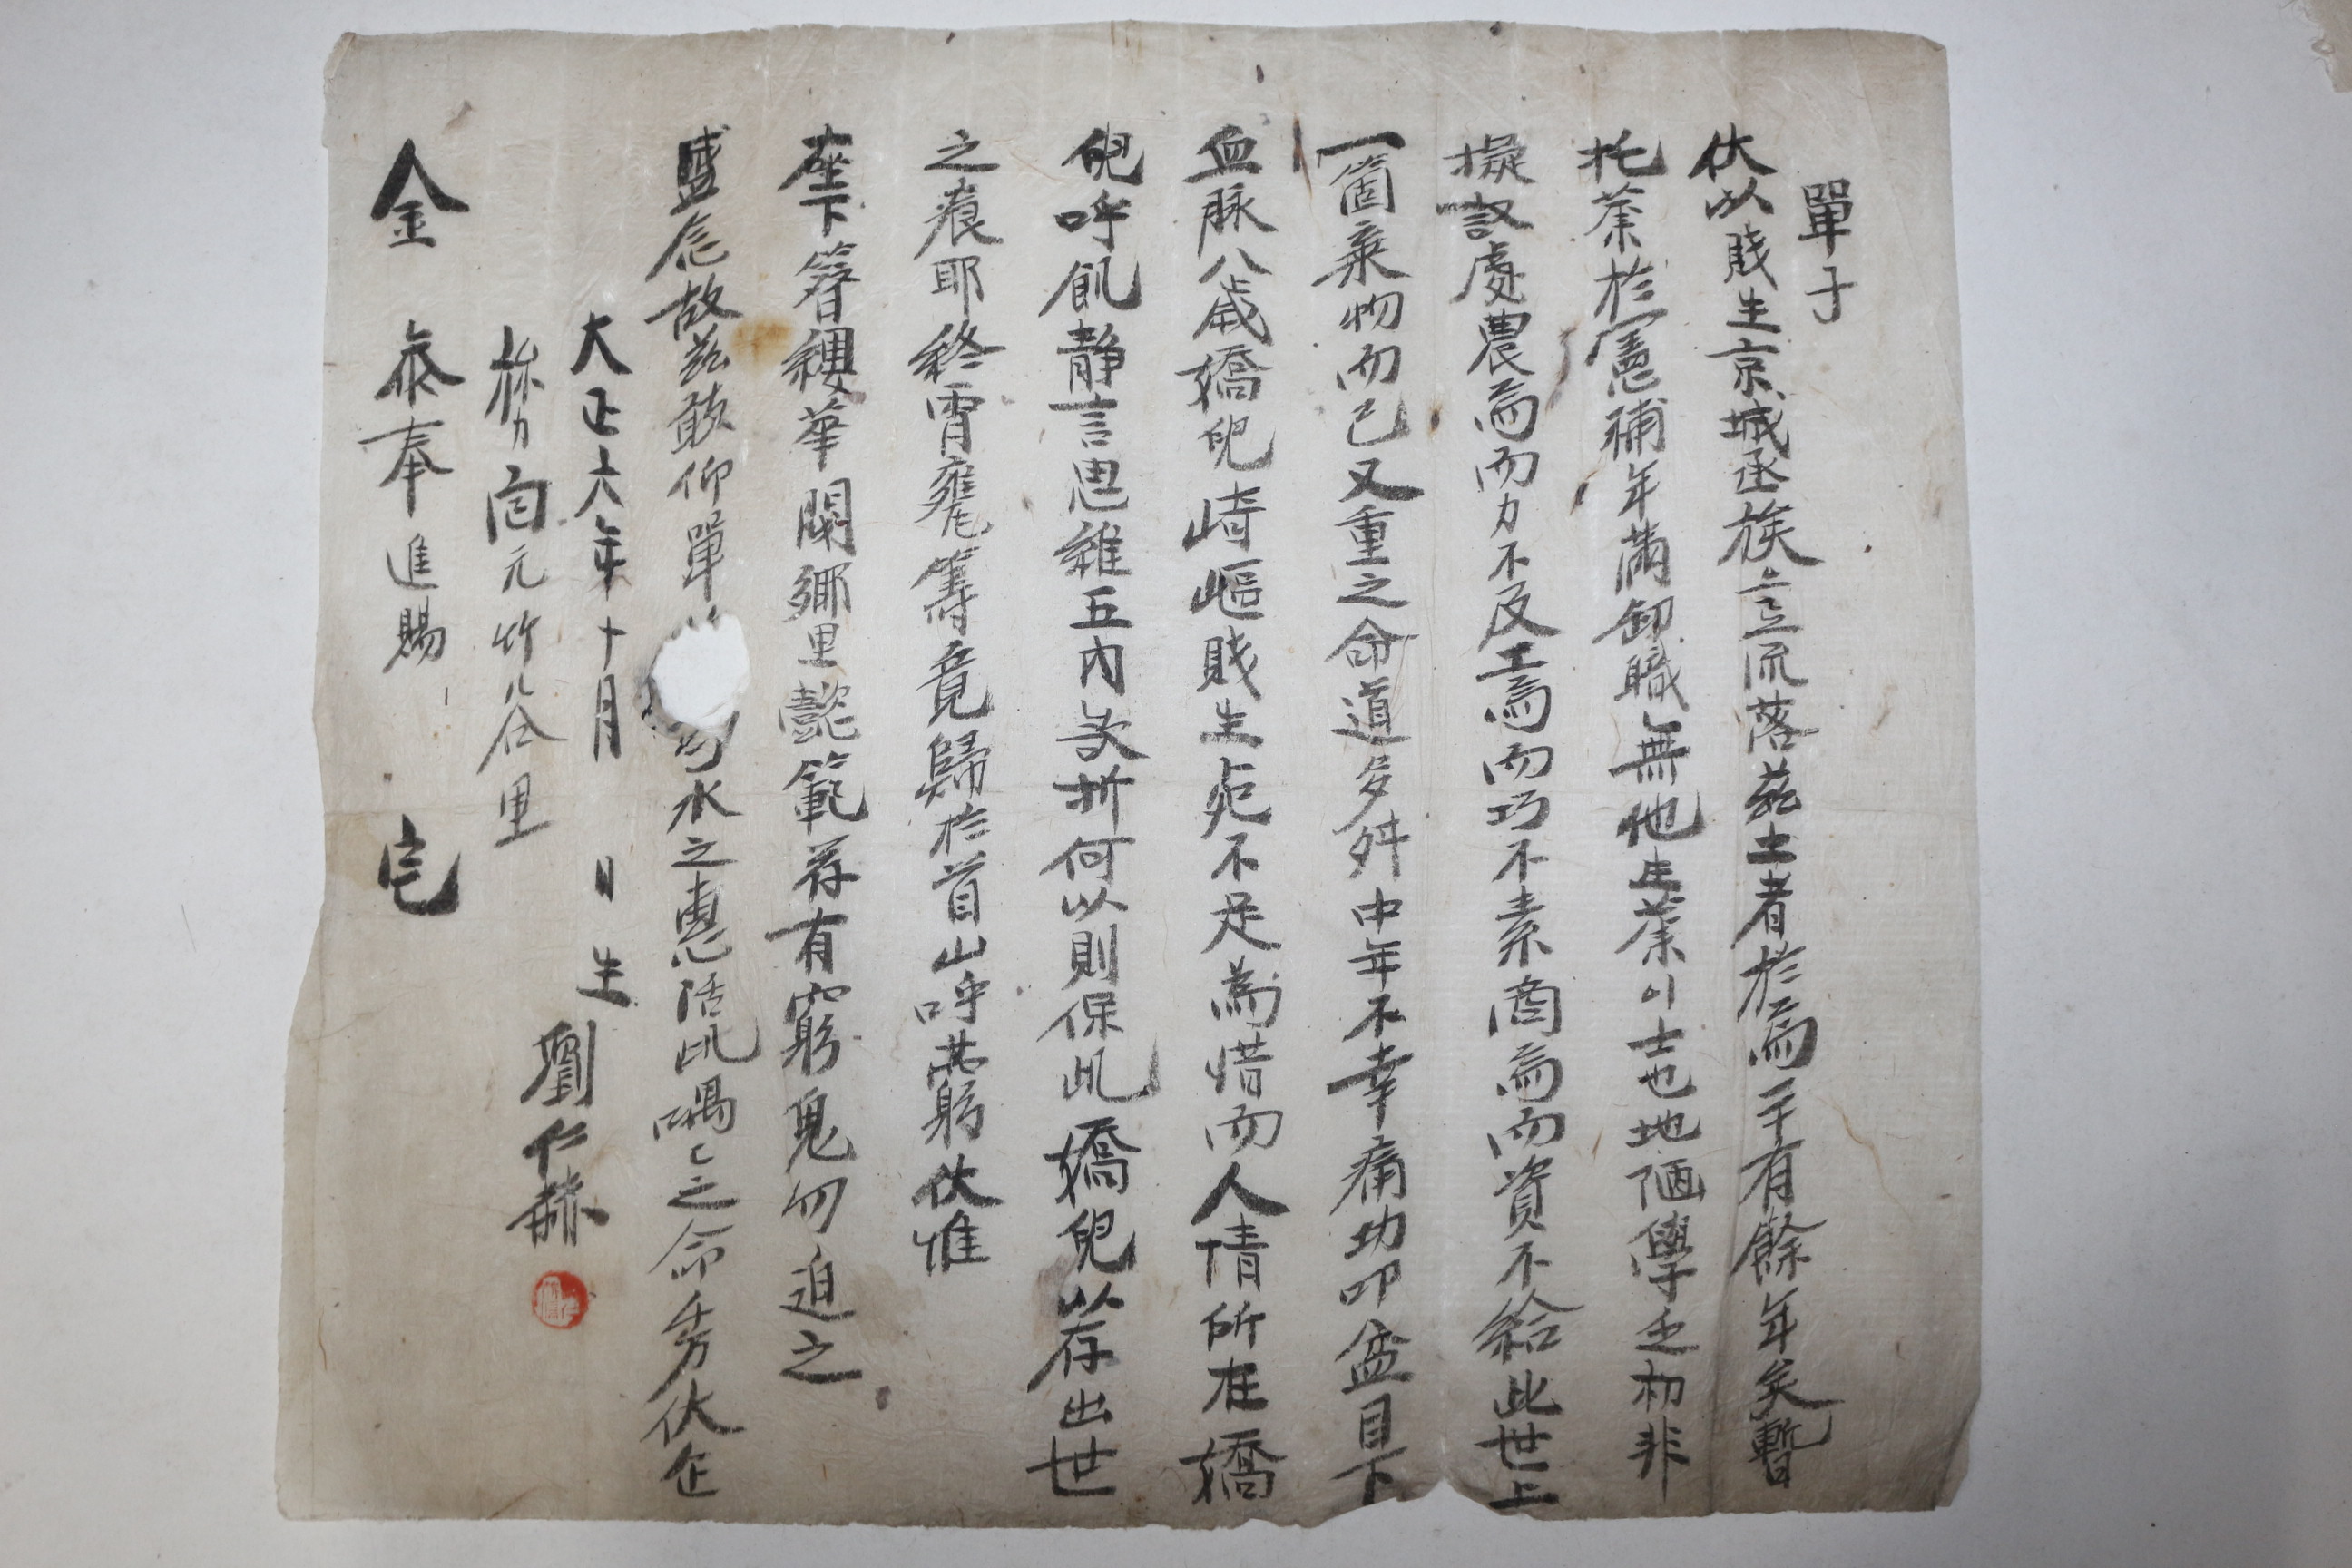 單子
伏以賤生京城丞族三三流落茲土者於焉二十有餘年矣暫
托業於憲補年滿卸職無他生業以士也地陋學乏初非
擬議處農焉而力不及工焉而巧不素商焉而資不給此世上
一箇棄物而已又重之命道多舛中年不幸痛功叩盆目下
血脉八歲嬌兒崎嶇賤生死不足焉惜而人情所在嬌
兒呼飢靜言思難五內交折何以則保此嬌兒以存出世
之痕耶終宵甕籌竟歸於首山呼庚窮伏惟
座下簪纓華閥鄉里懿範存有窮鬼勿迫之
盛念故茲敢仰單 水之惠活此喁々之命千万伏企
大正六年十月 日 生 劉仁赫
務 元竹谷里
金 叅奉 進賜 宅